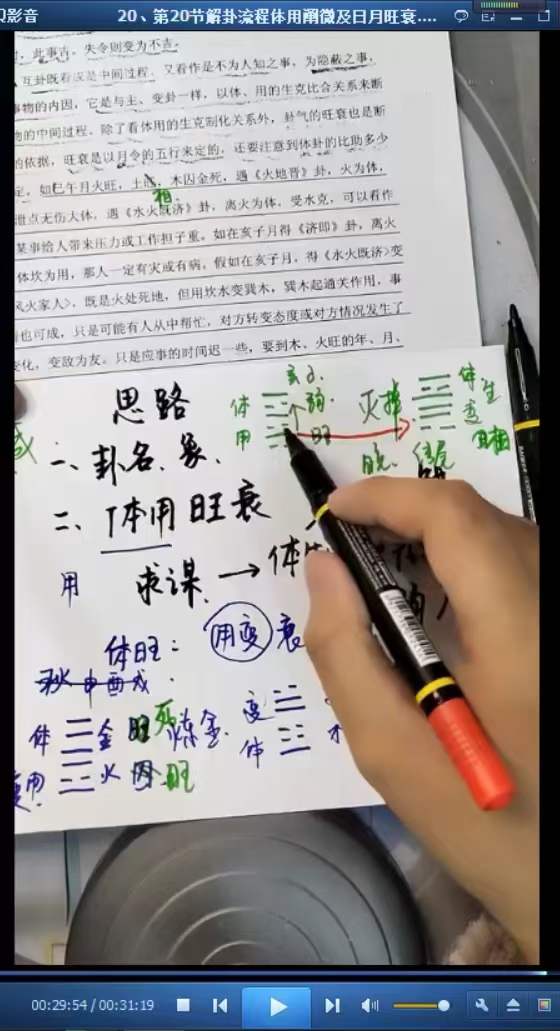 贝影音
20、第20节解卦流程体用阐微及日月旺衰....
,此事吉。失令则变为不吉。
互卦既看成是中间过程,又看作是不为人知之事,为隐蔽之事,
事物的内因,它是与主、变卦一样,以体、用的生克比合关系来断
物的中间过程。除了看体用的生克制化关系外,卦气的旺衰也是断
的依据,旺衰是以月令的五行来定的,还要注意到体卦的比助多少
定,如巳午月火旺,土
相
,木囚金死,遇《火地晋》卦,火为体,
泄点无伤大体,遇《水火既济》卦,离火为体,受水克,可以看作
某事给人带来压力或工作担子重。如在亥子月得《济即》卦,离火
体坎为用,那人一定有灾或有病。假如在亥子月,得《水火既济》变
风火家人》,既是火处死地,但用坎水变巽木,巽木起通关作用,事
也可成,只是可能有人从中帮忙,对方转变态度或对方情况发生了
变化,变敌为友。只是应事的时间迟一些,要到木、火旺的年、月、
思路
亥子.
体 弱.
用 旺
灭掉
体 生
变
一、卦名、象、
二、体用旺衰
用 求谋. → 体
体旺: 用变 衰
秋申酉戌.
体 金 旺 死 炼金.
变用 火 囚 旺
变
体
00:29:54 / 00:31:19